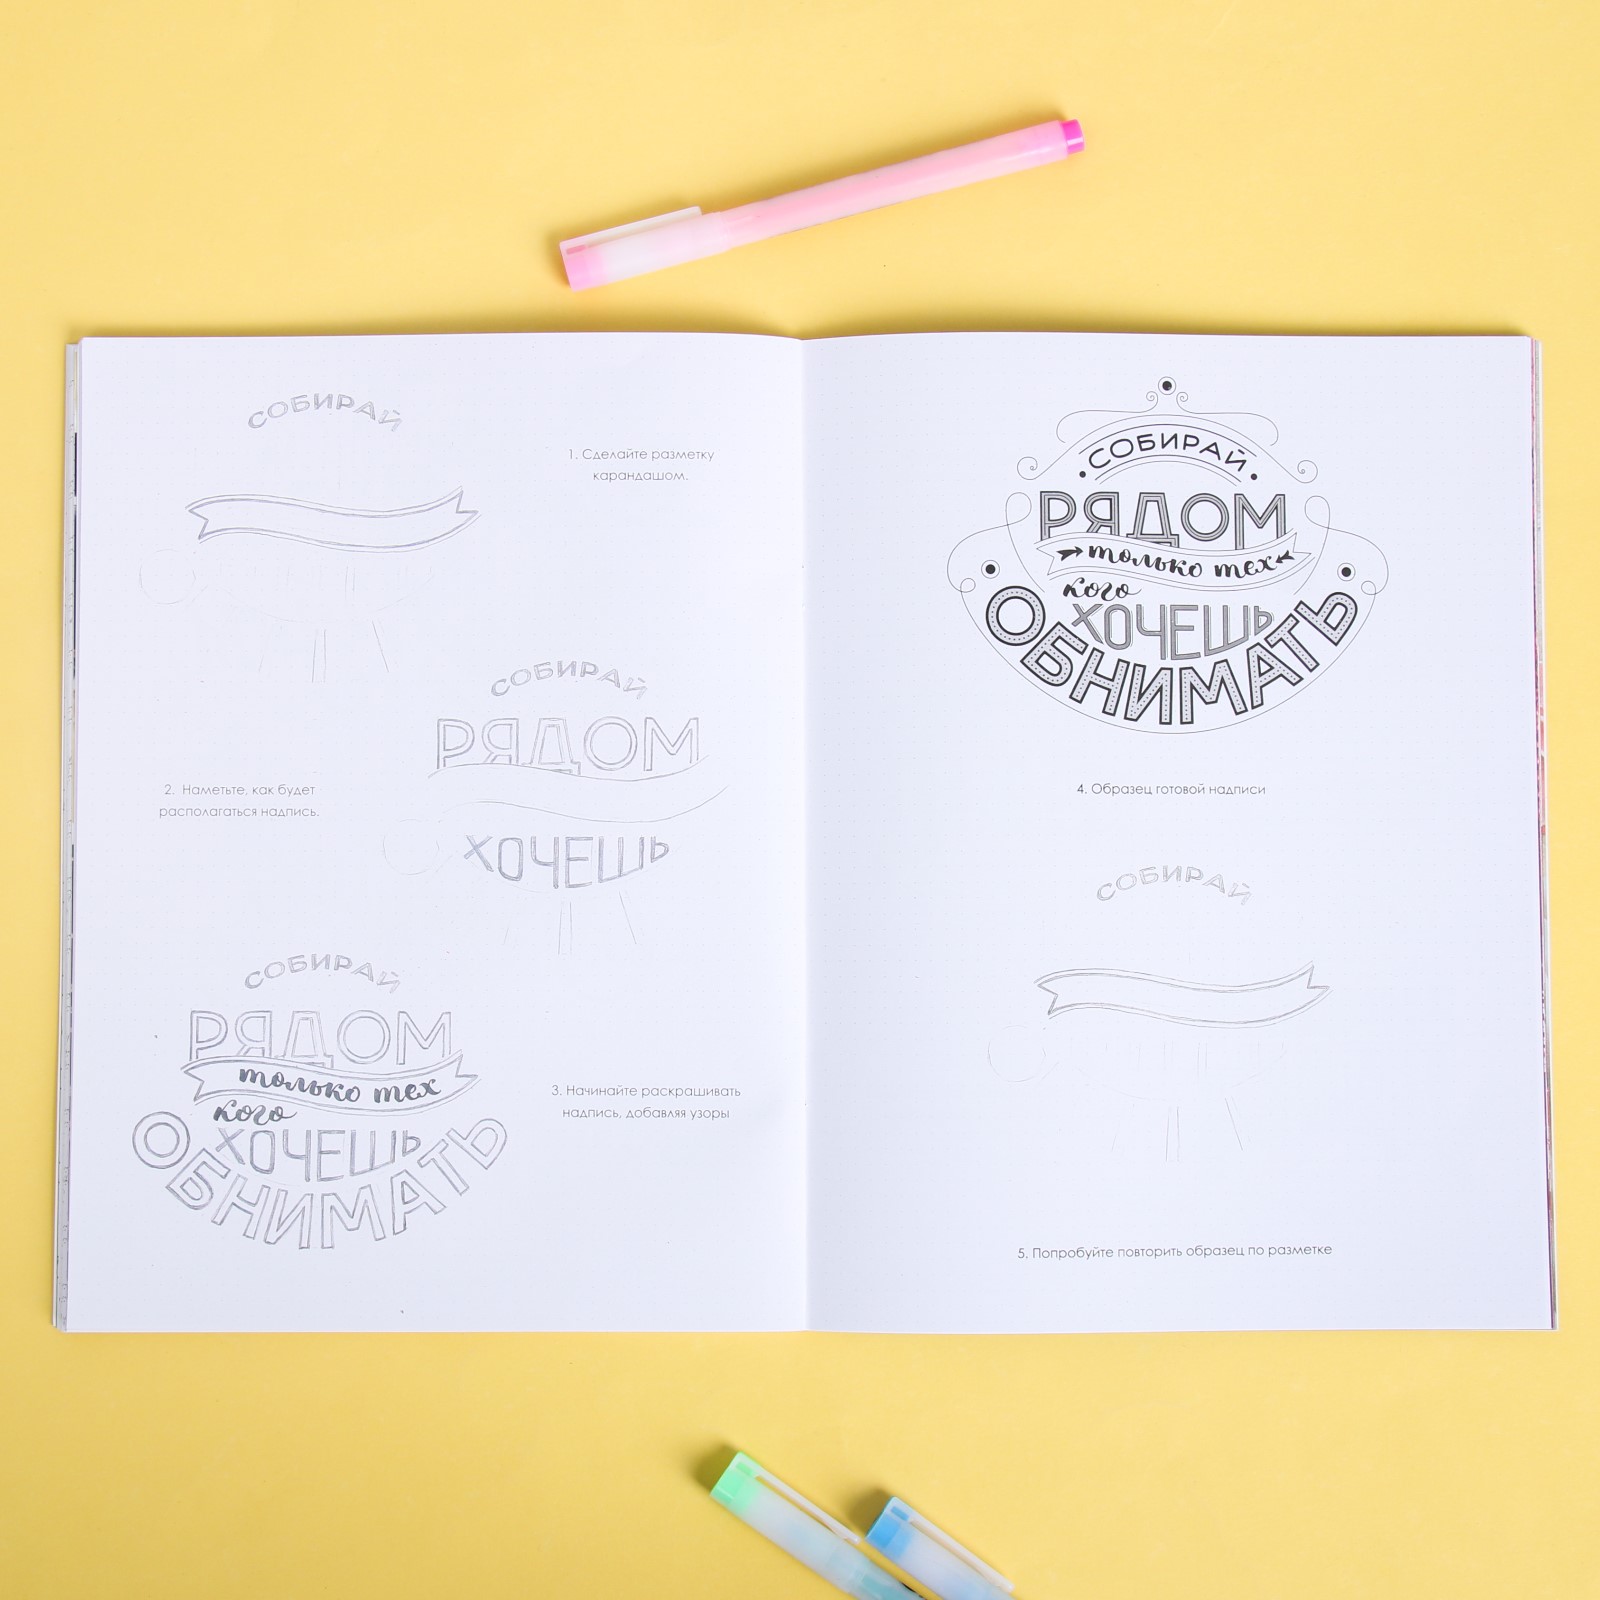 СОБИРАЙ
1. Сделайте разметку
карандашом.
СОБИРАЙ
РЯДОМ
ХОЧЕШЬ
2. Наметьте, как будет
располагаться надпись.
СОБИРАЙ
РЯДОМ
только тех
кого
ХОЧЕШЬ
ОБНИМАТЬ
3. Начинайте раскрашивать
надпись, добавляя узоры
СОБИРАЙ
РЯДОМ
только тех
кого
ХОЧЕШЬ
ОБНИМАТЬ
4. Образец готовой надписи
СОБИРАЙ
5. Попробуйте повторить образец по разметке